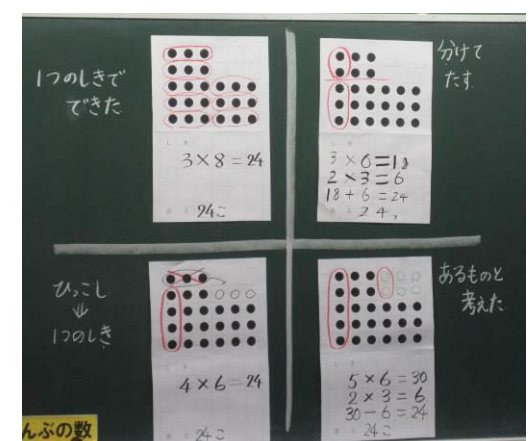 1つのしきで
できた
3×8=24
24こ
分けて
たす
3×6=18
2×3=6
18+6=24
24
ひっこし
⇓
1つのしき
4×6=24
24こ
あるものと
考えた
5×6=30
2×3=6
30-6=24
24こ
んぶの数